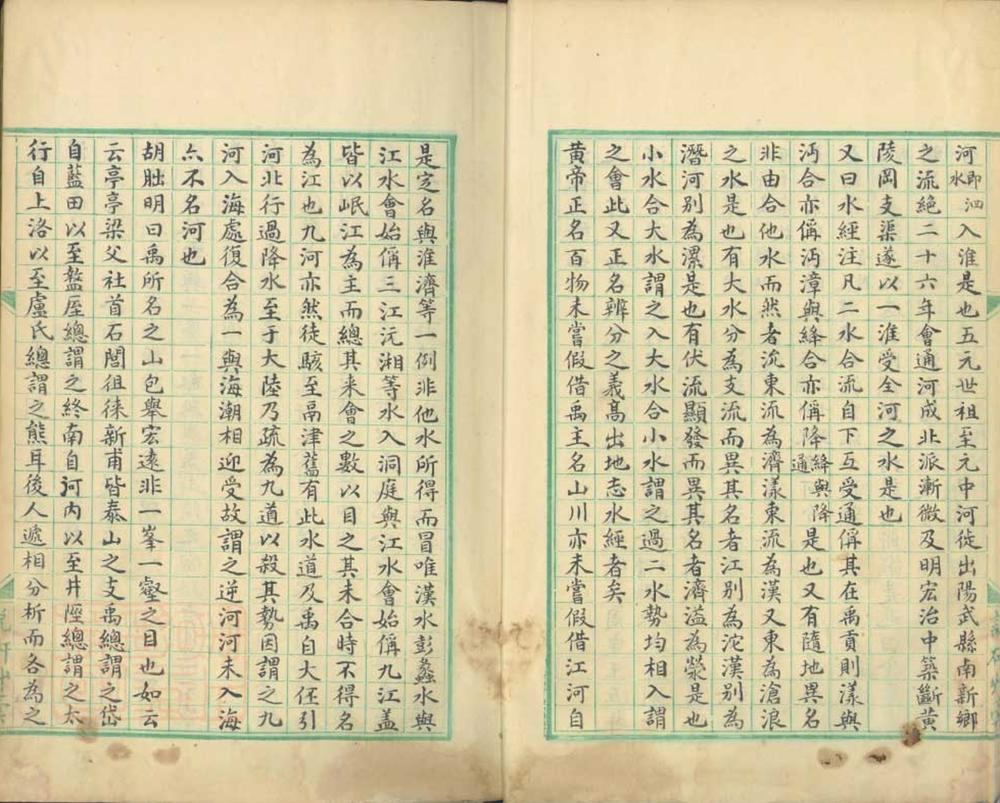 河即泗水入淮是也五元世祖至元中河徙出陽武縣南新鄉
之流絶二十六年會通河成北派漸微及明宏治中築斷黃
陵岡支渠遂以一淮受全河之水是也
又曰水經注凡二水合流自下互受通偁其在禹貢則漾與
沔合亦偁沔漳與絳合亦偁降絳與降通是也又有隨地異名
非由合他水而然者沇東流為濟漾東流為漢又東為滄浪
之水是也有大水分為支流而異其名者江別為沱漢別為
潛河別為漯是也有伏流顯發而異其名者濟溢為滎是也
小水合大水謂之入大水合小水謂之過二水勢均相入謂
之會此又正名辨分之義高出地志水經者矣
黃帝正名百物未嘗假借禹主名山川亦未嘗假借江河自
是定名與淮濟等一例非他水所得而冒唯漢水彭蠡水與
江水會始偁三江沅湘等水入洞庭與江水會始偁九江盖
皆以岷江為主而總其来會之數以目之其未合時不得名
為江也九河亦然徒駭至鬲津舊有此水道及禹自大伾引
河北行過降水至于大陸乃疏為九道以殺其勢因謂之九
河入海處復合為一與海潮相迎受故謂之逆河河未入海
六不名河也
胡朏明曰禹所名之山包舉宏遠非一峯一壑之目也如云
云亭亭梁父社首石閭徂徠新甫皆泰山之支禹總謂之岱
自藍田以至盩厔總謂之終南自河內以至井陘總謂之太
行自上洛以至盧氏總謂之熊耳後人遞相分析而各為之